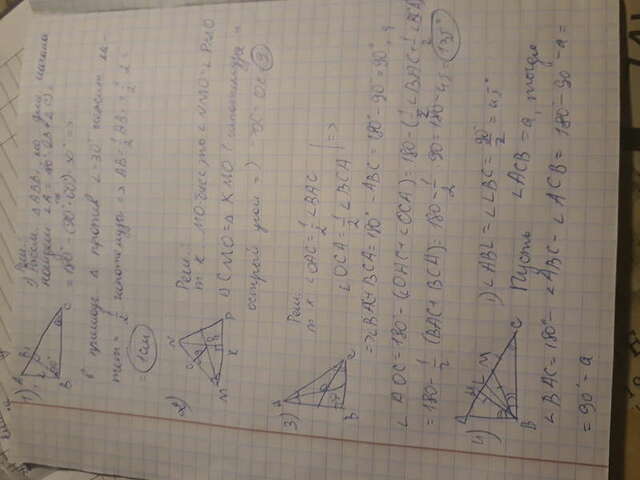 1) Реш:
1) Рассм. △ABB₁, но для начала
найдем ∠A = 180°-(∠B+∠C) =
= 180° - (90°+60°) = 30° =>
В прямоуг △ против ∠30° лежит ка-
тет = 1/2 гипотенуза => AB = 1/2 BB₁ = 1/2 · 2 =
= 1 см
2) Реш:
т.к. MO-бисс, то ∠NMO = ∠PMO
△CMO = △KMO (гипотенуза и
острый угол =) => OC = OK = 9
3) Реш:
т.к ∠OAC = 1/2 ∠BAC
∠OCA = 1/2 ∠BCA | =>
=> ∠BAC + BCA = 180° - ABC = 180° - 90° = 90°
∠AOC = 180° - (∠OAC + ∠OCA) = 180 - (1/2 ∠BAC + 1/2 ∠BCA)
= 180 - 1/2 (BAC + BCA) = 180 - 1/2 · 90 = 180 - 45 = 135°
4) 1) ∠ABL = ∠LBC = 90°/2 = 45°
Пусть ∠ACB = a, тогда
∠BAC = 180° - ∠ABC - ∠ACB = 180° - 90° - a =
= 90° - a